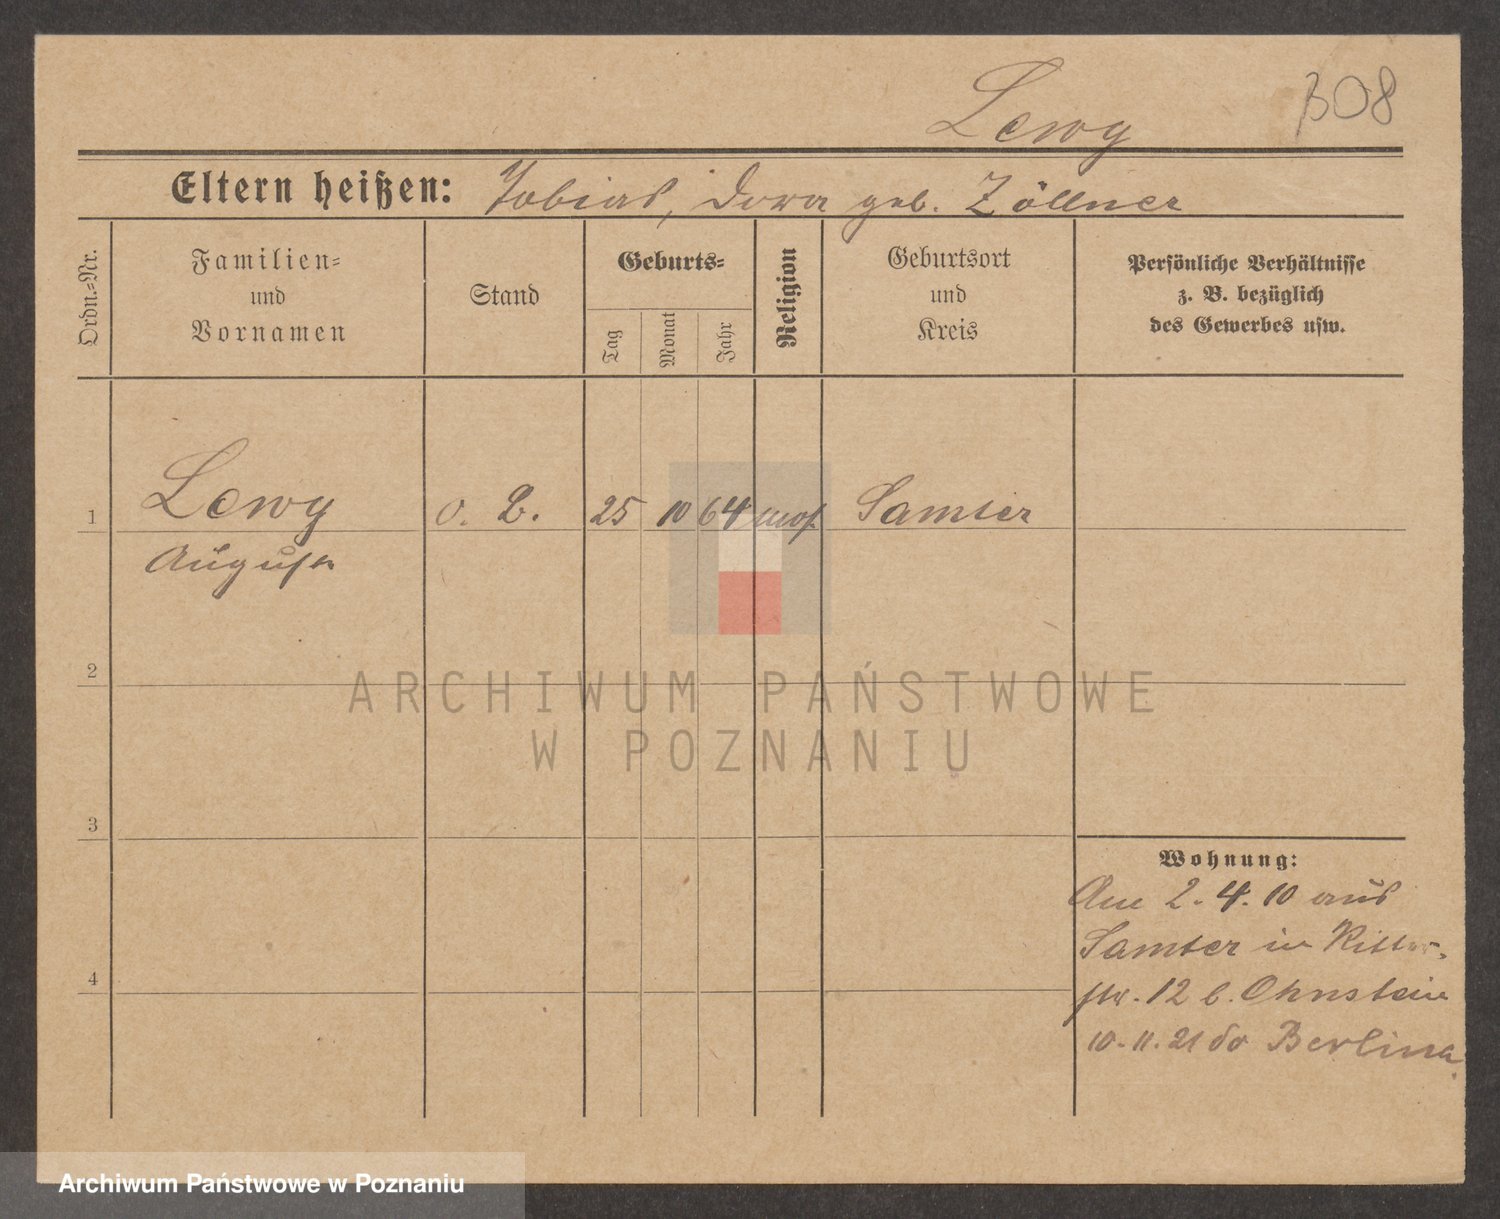 Lewy 308
Eltern heißen: Tobias, Dora geb. Zöllner
Ordn.-Nr.
Familien-
und
Vornamen
Stand
Geburts-
Tag
Monat
Jahr
Religion
Geburtsort
und
Kreis
Persönliche Verhältnisse
z. B. bezüglich
des Gewerbes usw.
1 Lewy o. B. 25 10 64 mos. Samter
Auguste
2
3
4
Wohnung:
Am 2. 4. 10 aus
Samter in Ritter-
str. 12 b. Ohnstein
10. 11. 21 do Berlina
ARCHIWUM PAŃSTWOWE
W POZNANIU
Archiwum Państwowe w Poznaniu